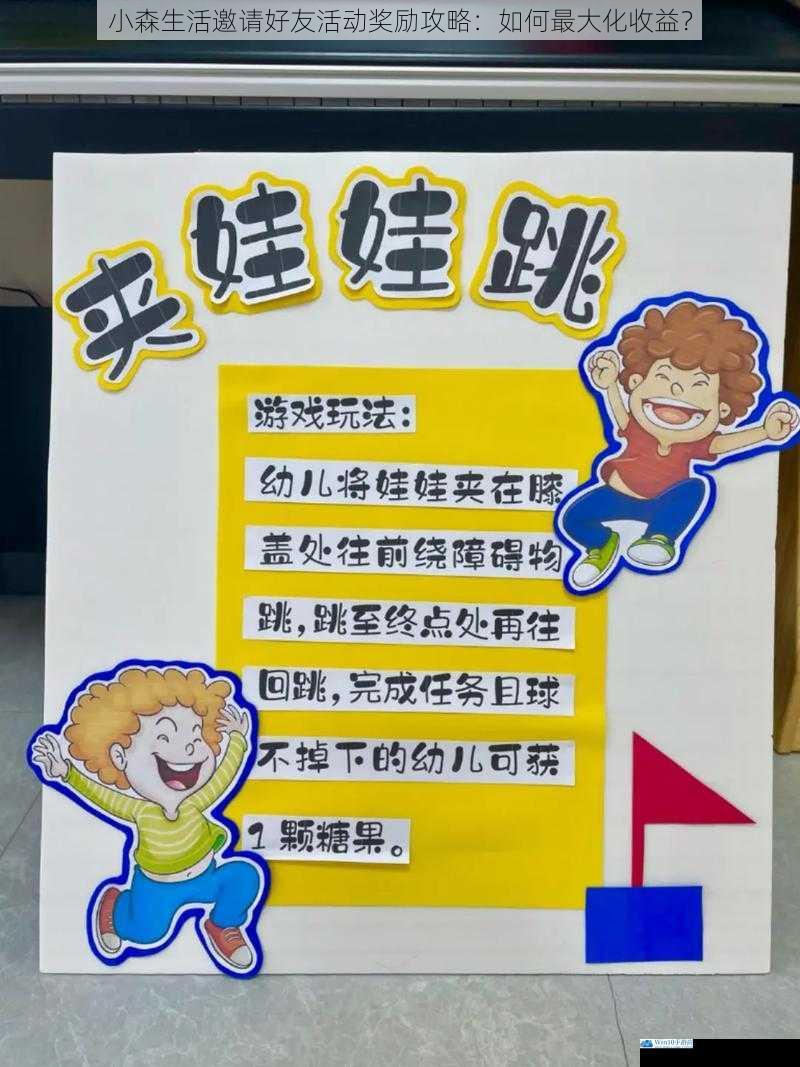 小森生活邀请好友活动奖励攻略：如何最大化收益？
夹娃娃跳
游戏玩法：
幼儿将娃娃夹在膝
盖处往前绕障碍物
跳，跳至终点处再往
回跳，完成任务且球
不掉下的幼儿可获
1颗糖果。
Win10手游网